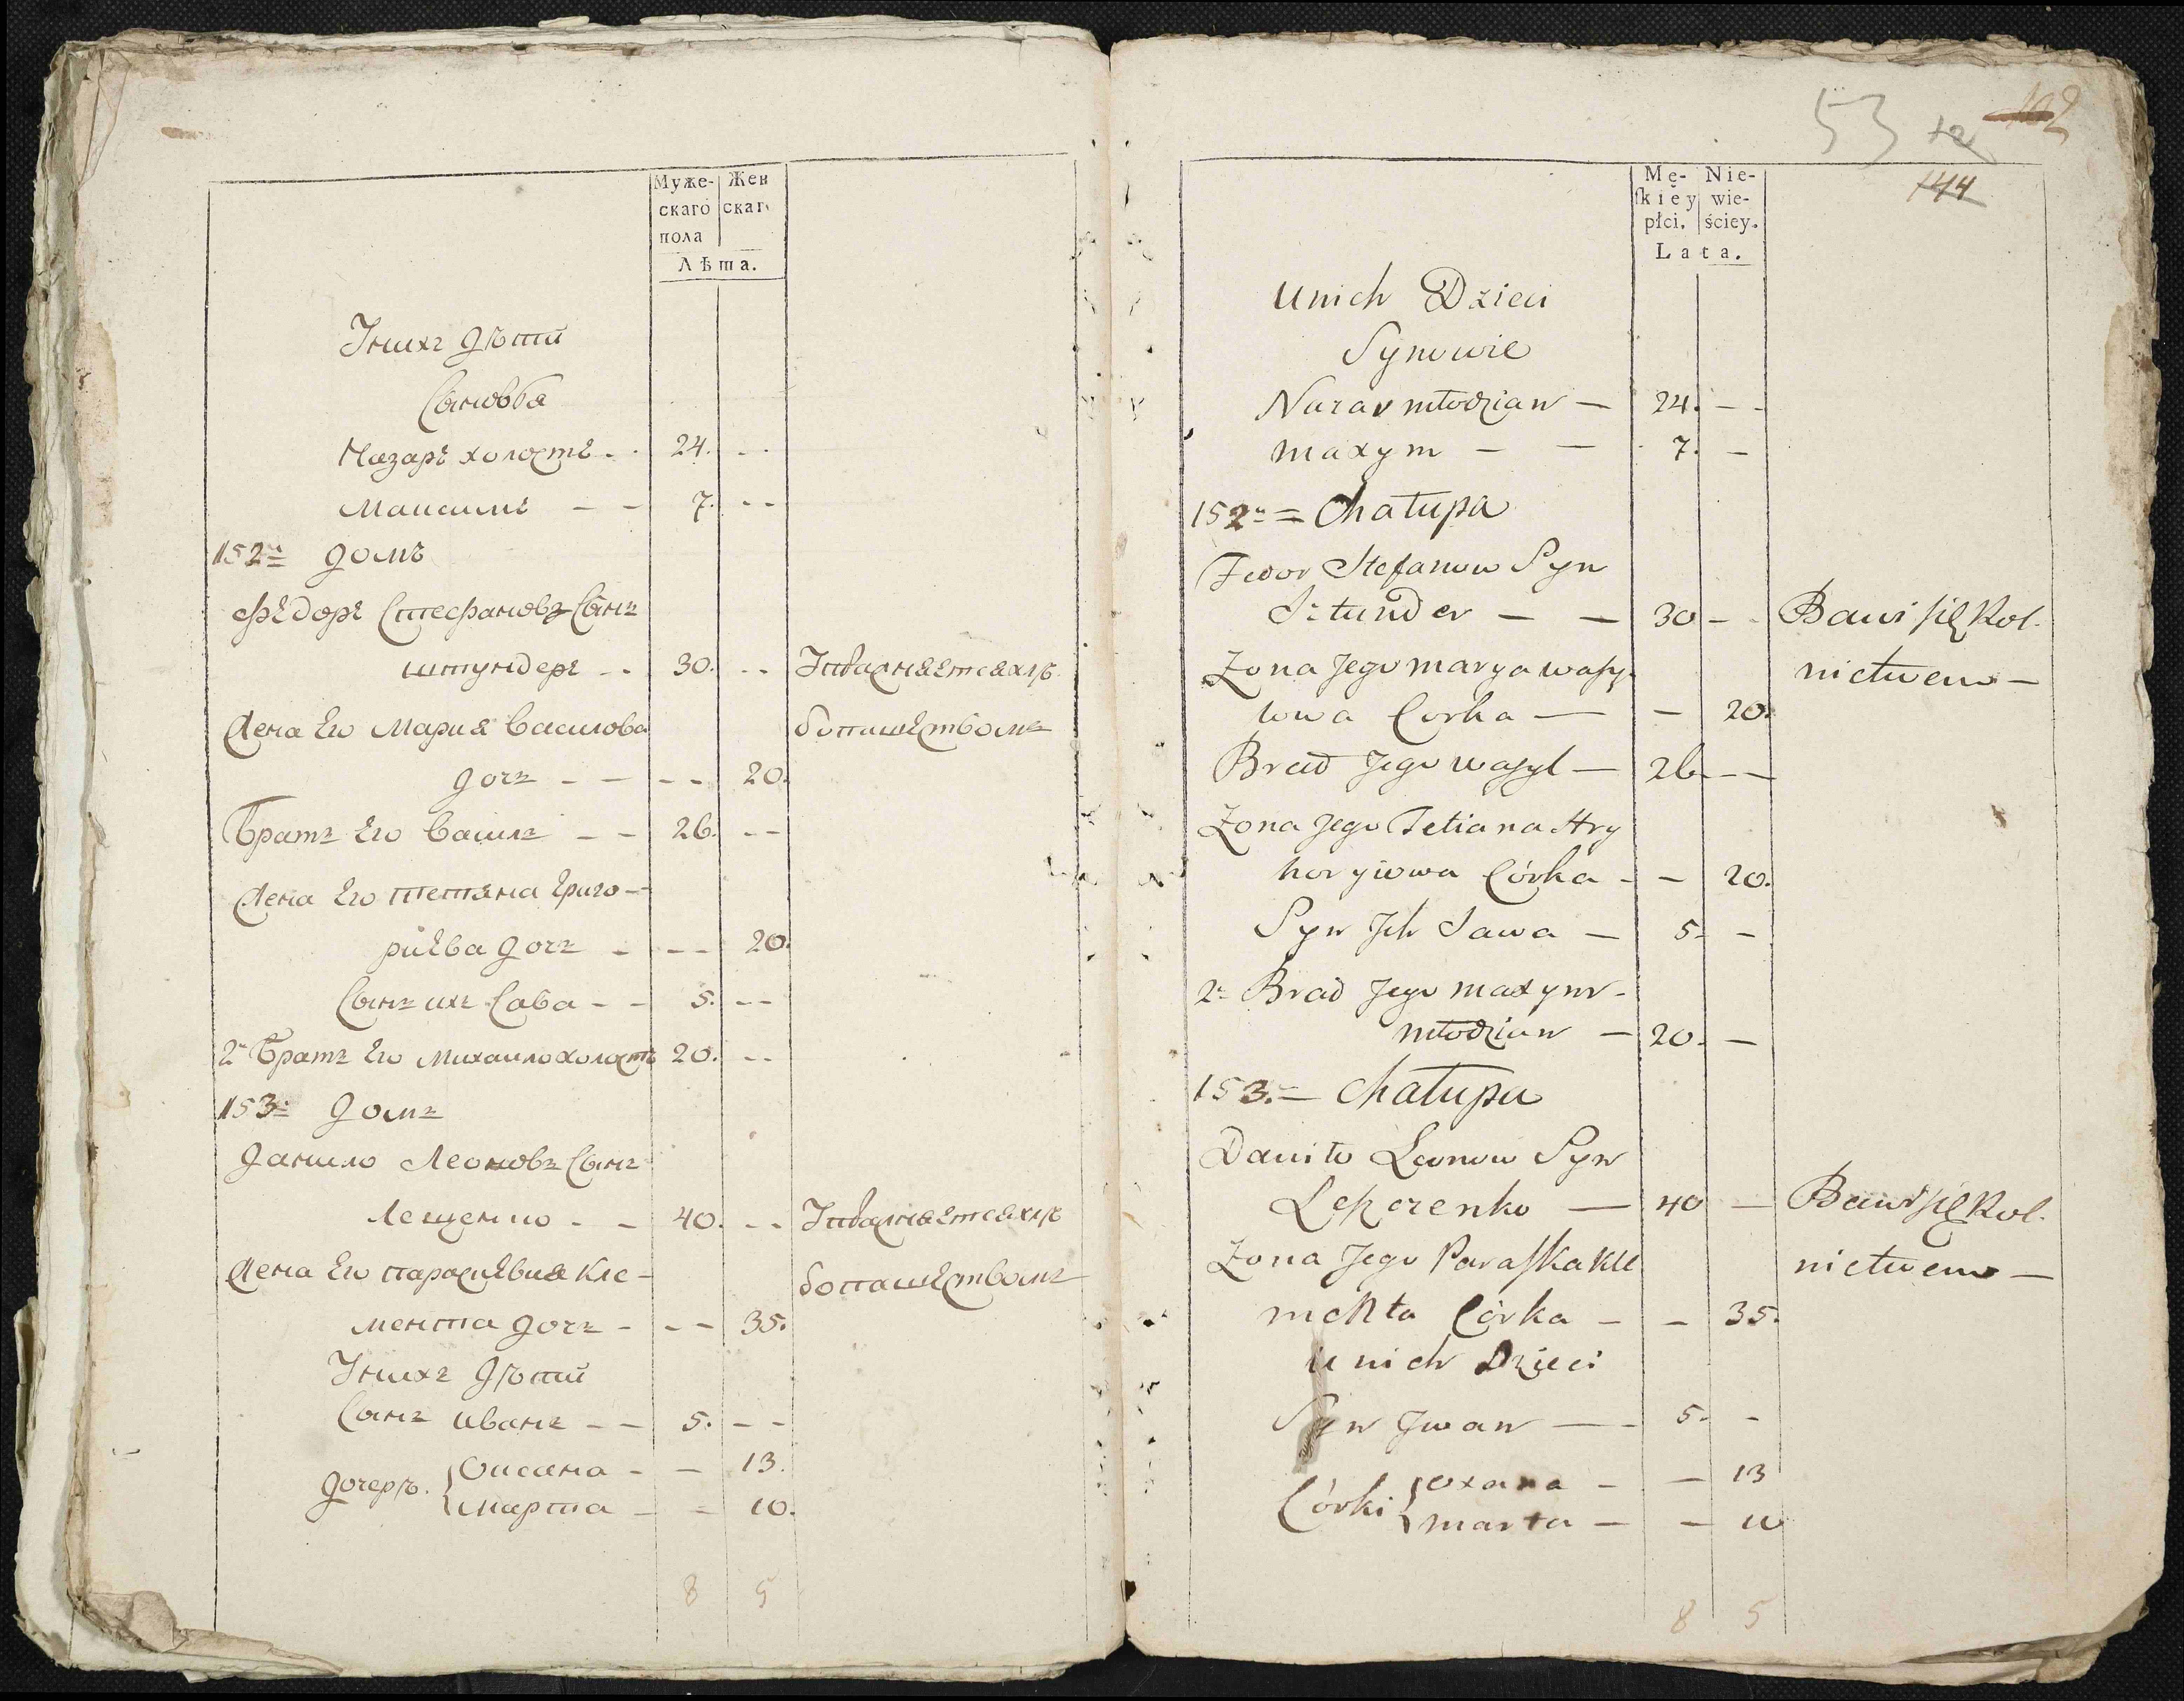 Муже- Жен
скаго скаг
пола
Лѣта.
Унихъ Дѣти
Сыновья
Назаръ холостъ - - 24. - -
Максимъ - - 7. - -
152й Домъ
Фѣдоръ Стефановъ Сынъ
Штундеръ - - 30. - - Упражняется хлѣ
Жена Его Мария Василова бопашествомъ
дочь - - - - 20.
Братъ Его Василь - - 26. - -
Жена Его Тетяна Григо-
риева дочь - - - 20.
Сынъ ихъ Сава - - 5. - -
2й Братъ Его Михаило холостъ 20. - -
153й Домъ
Данило Леоновъ Сынъ
Лещенко - - 40. - - Упражняется хлѣ
Жена Его Параскѣвия Кле- бопашествомъ
мента дочь - - - 35.
Унихъ Дѣти
Сынъ Иванъ - - 5. - -
Дочерѣ. { Оксана - - 13.
Марта - - 10.
8 5
53 12 102
144
Mę- Nie-
skiey wie-
płci. ściey.
Lata.
Unich Dzieci
Synowie
Nazar młodzian — 24. - -
Maxym — — 7. —
152а = Chałupa
Fedor Stefanow Syn
Sztunder — — 30 - - Bawi się Rol-
Zona Jego Marya Wasy- nictwem —
lowa Corka — — 20.
Brad Jego Wasyl — 26 - —
Zona Jego Tetiana Hry
horyiowa Córka - — 20.
Syn Jch Sawa — 5. —
2й Brad Jego Maxym -
młodzian — 20. —
153. = Chałupa
Daniło Leonow Syn
Leszczenko — 40 — Bawi się Rol-
Zona Jego Paraska Kle nictwem —
menta Córka — — 35.
U nich Dzieci
Syn Jwan — - 5. -
Córki { Oxana - — 13
Marta — — 10
8 5